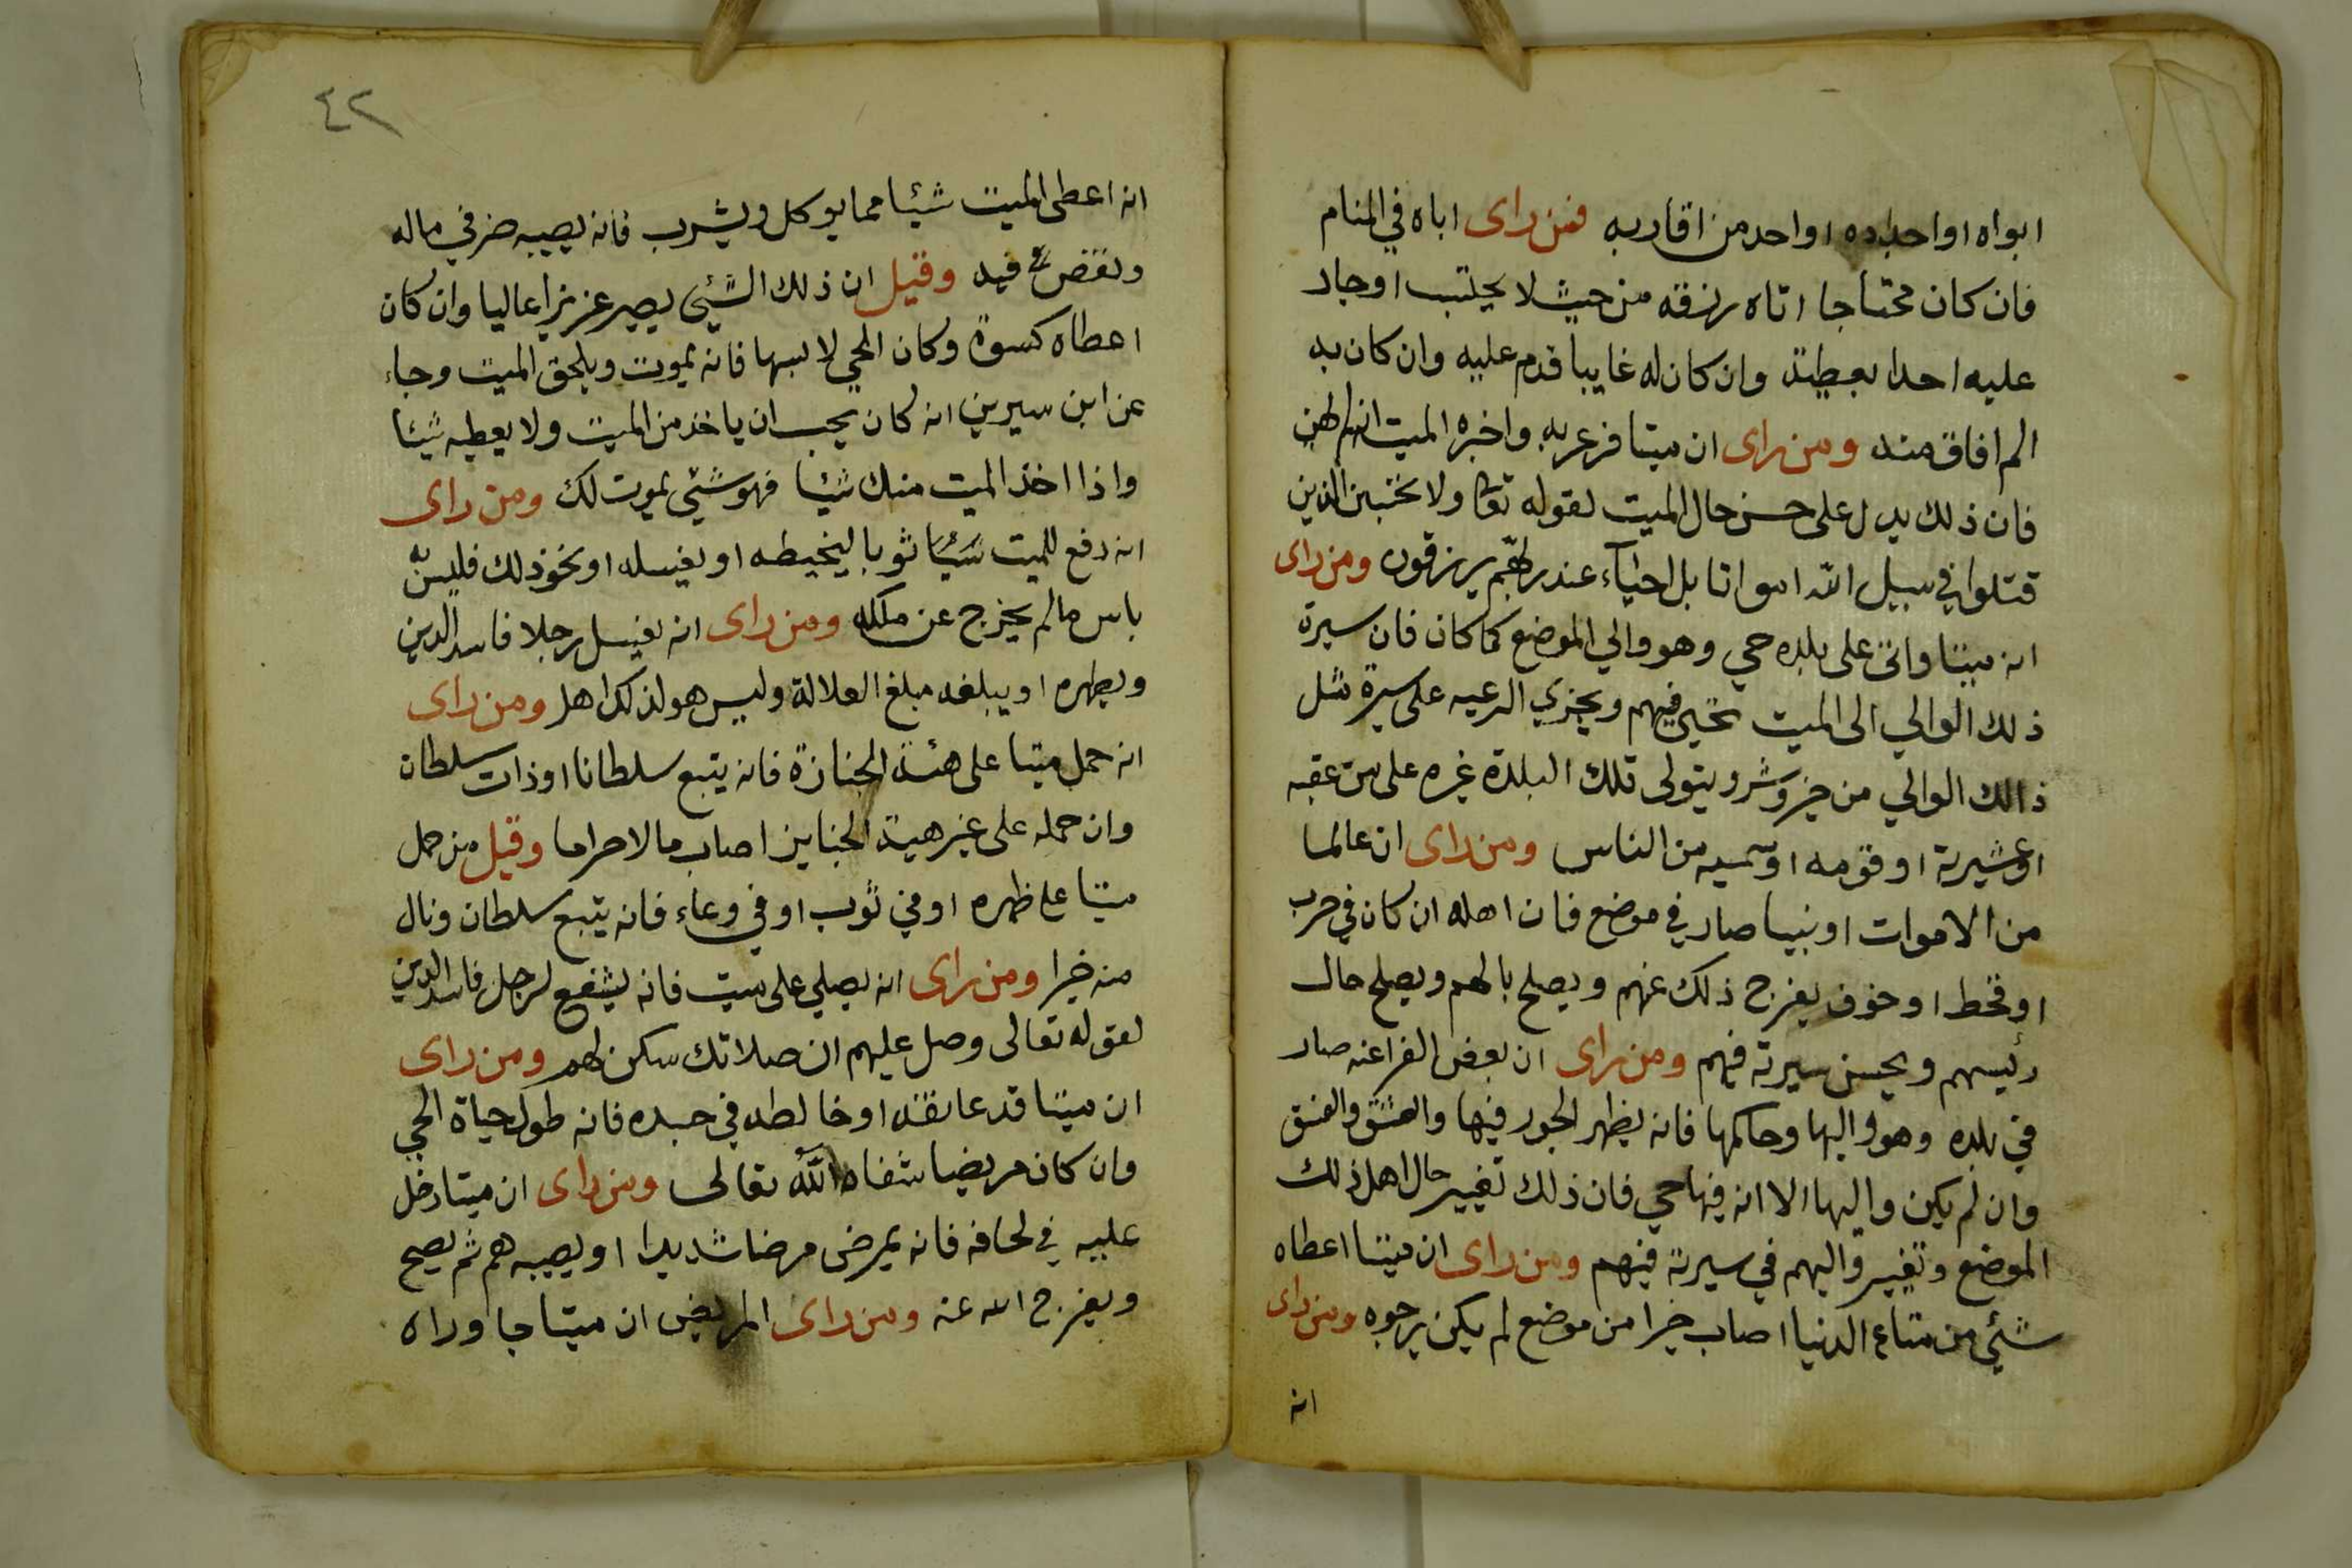 ابواه او احداده او احد من اقاربه فمن راى اباه في المنام
فان كان محتاجا اتاه رزقه من حيث لا يحتسب او جاد
عليه احدا بعطية وان كان له غايبا قدم عليه وان كان به
الم افاق منه ومن راى ان ميتا فزع به واخبره الميت
فان ذلك يدل على حسن حال الميت لقوله تعا ولا تحسبن الذين
قتلوا في سبيل الله امواتا بل احياء عند ربهم يرزقون ومن راى
انه ميتا واتى على بلده حي وهو والي الموضع كما كان فان سيرة
ذلك الوالي الى الميت تحيى فيهم ويجزي الرعيه على سيرة مثل
ذالك الوالي من خير وشر ويتولى تلك البلدة غيره على من عقبه
او عشيرته او قومه او سميه من الناس ومن راى ان عالما
من الاموات او نبيا صار في موضع فان اهله ان كان في حرب
او قحط او خوف يفرج ذلك عنهم ويصلح بالهم ويصلح حال
رئيسهم ويحسن سيرته فيهم ومن راى ان بعض الفراعنه صار
في بلده وهو واليها وحاكمها فانه يظهر الجور فيها والفسق
وان لم يكن واليها الا انه فيها حي فان ذلك تغيير حال اهل ذلك
الموضع وتغيير واليهم في سيرته فيهم ومن راى ان ميتا اعطاه
شئي من متاع الدنيا اصاب خيرا من موضع لم يكن يرجوه ومن راى
انه
٤٢
انه اعطى الميت شيئا مما يوكل ويشرب فانه يصيبه ضر في ماله
ونقص فيه وقيل ان ذلك الشئي يصير عزيزا عاليا وان كان
اعطاه كسوة وكان الحي لابسها فانه يموت ويلحق الميت وجاء
عن ابن سيرين انه كان يحب ان ياخذ من الميت ولا يعطيه شيئا
واذا اخذ الميت منك شيئا فهو شئي يموت لك ومن راى
انه دفع للميت شيئا ثوبا ليخيطه او يغسله او نحو ذلك فليس به
باس مالم يخرج عن ملكه ومن راى انه يغسل رجلا فاسد الدين
ويطهره او يبلغه مبلغ العلالة وليس هو لذلك اهل ومن راى
انه حمل ميتا على هئة الجنازة فانه يتبع سلطانا او ذات سلطان
وان حمله على غير هيئة الجنايز اصاب مالا حراما وقيل من حمل
ميتا على ظهره او في ثوب او في وعاء فانه يتبع سلطان ونال
منه خيرا ومن راى انه يصلي على ميت فانه يشفع لرجل فاسد الدين
لقوله تعالى وصل عليهم ان صلاتك سكن لهم ومن راى
ان ميتا قد عانقه او خالطه في جسده فانه طول حياة الحي
وان كان مريضا شفاه الله تعالى ومن راى ان ميتا دخل
عليه في لحافه فانه يمرض مرضا شديدا او يصيبه هم ثم يصح
ويفرج الله عنه ومن راى المريض ان ميتا جا وراه